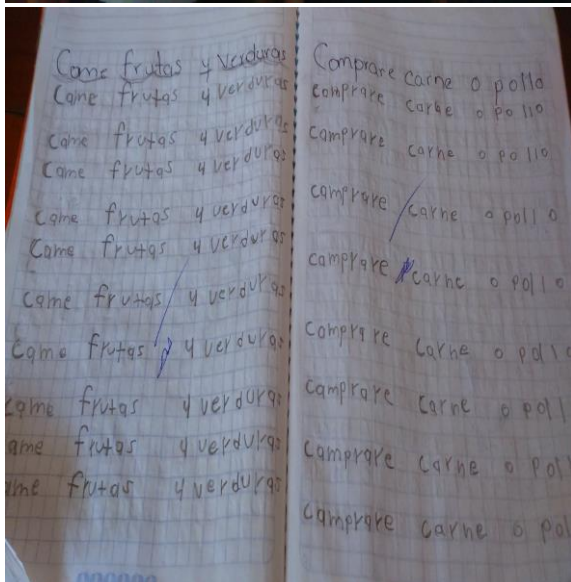 Come frutas y Verduras
Come frutas y verduras
come frutas y verduras
Come frutas y verduras
come frutas y verduras
Come frutas y verduras
came frutas y verduras
came frutas y verduras
came frutas y verduras
ame frutas y verduras
me frutas y verduras
Comprare carne o pollo
comprare carne o pollo
comprare carne o pollo
camprare carne o pollo
camprare carne o pollo
comprare carne o pollo
camprare carne o poll
camprare carne o pol
camprare carne o pol